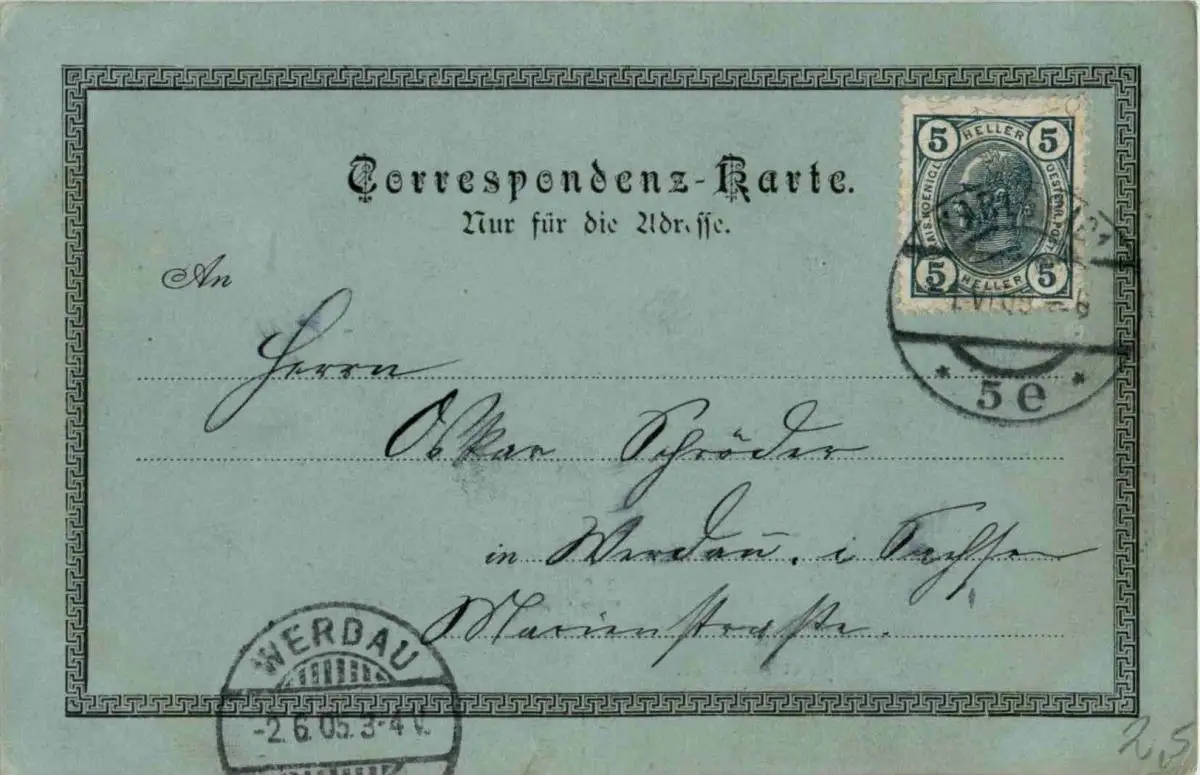 Correspondenz-Karte.
Nur für die Adresse.
An
5 HELLER 5
KAIS. KOENIGL.
OESTERR. POST.
5 HELLER 5
1.VI.05
* 5e *
Herrn
Oskar Schröder
in Werdau, i Sachsen
Marienstraße.
WERDAU
-2.6.05.3-4 V.
2,5